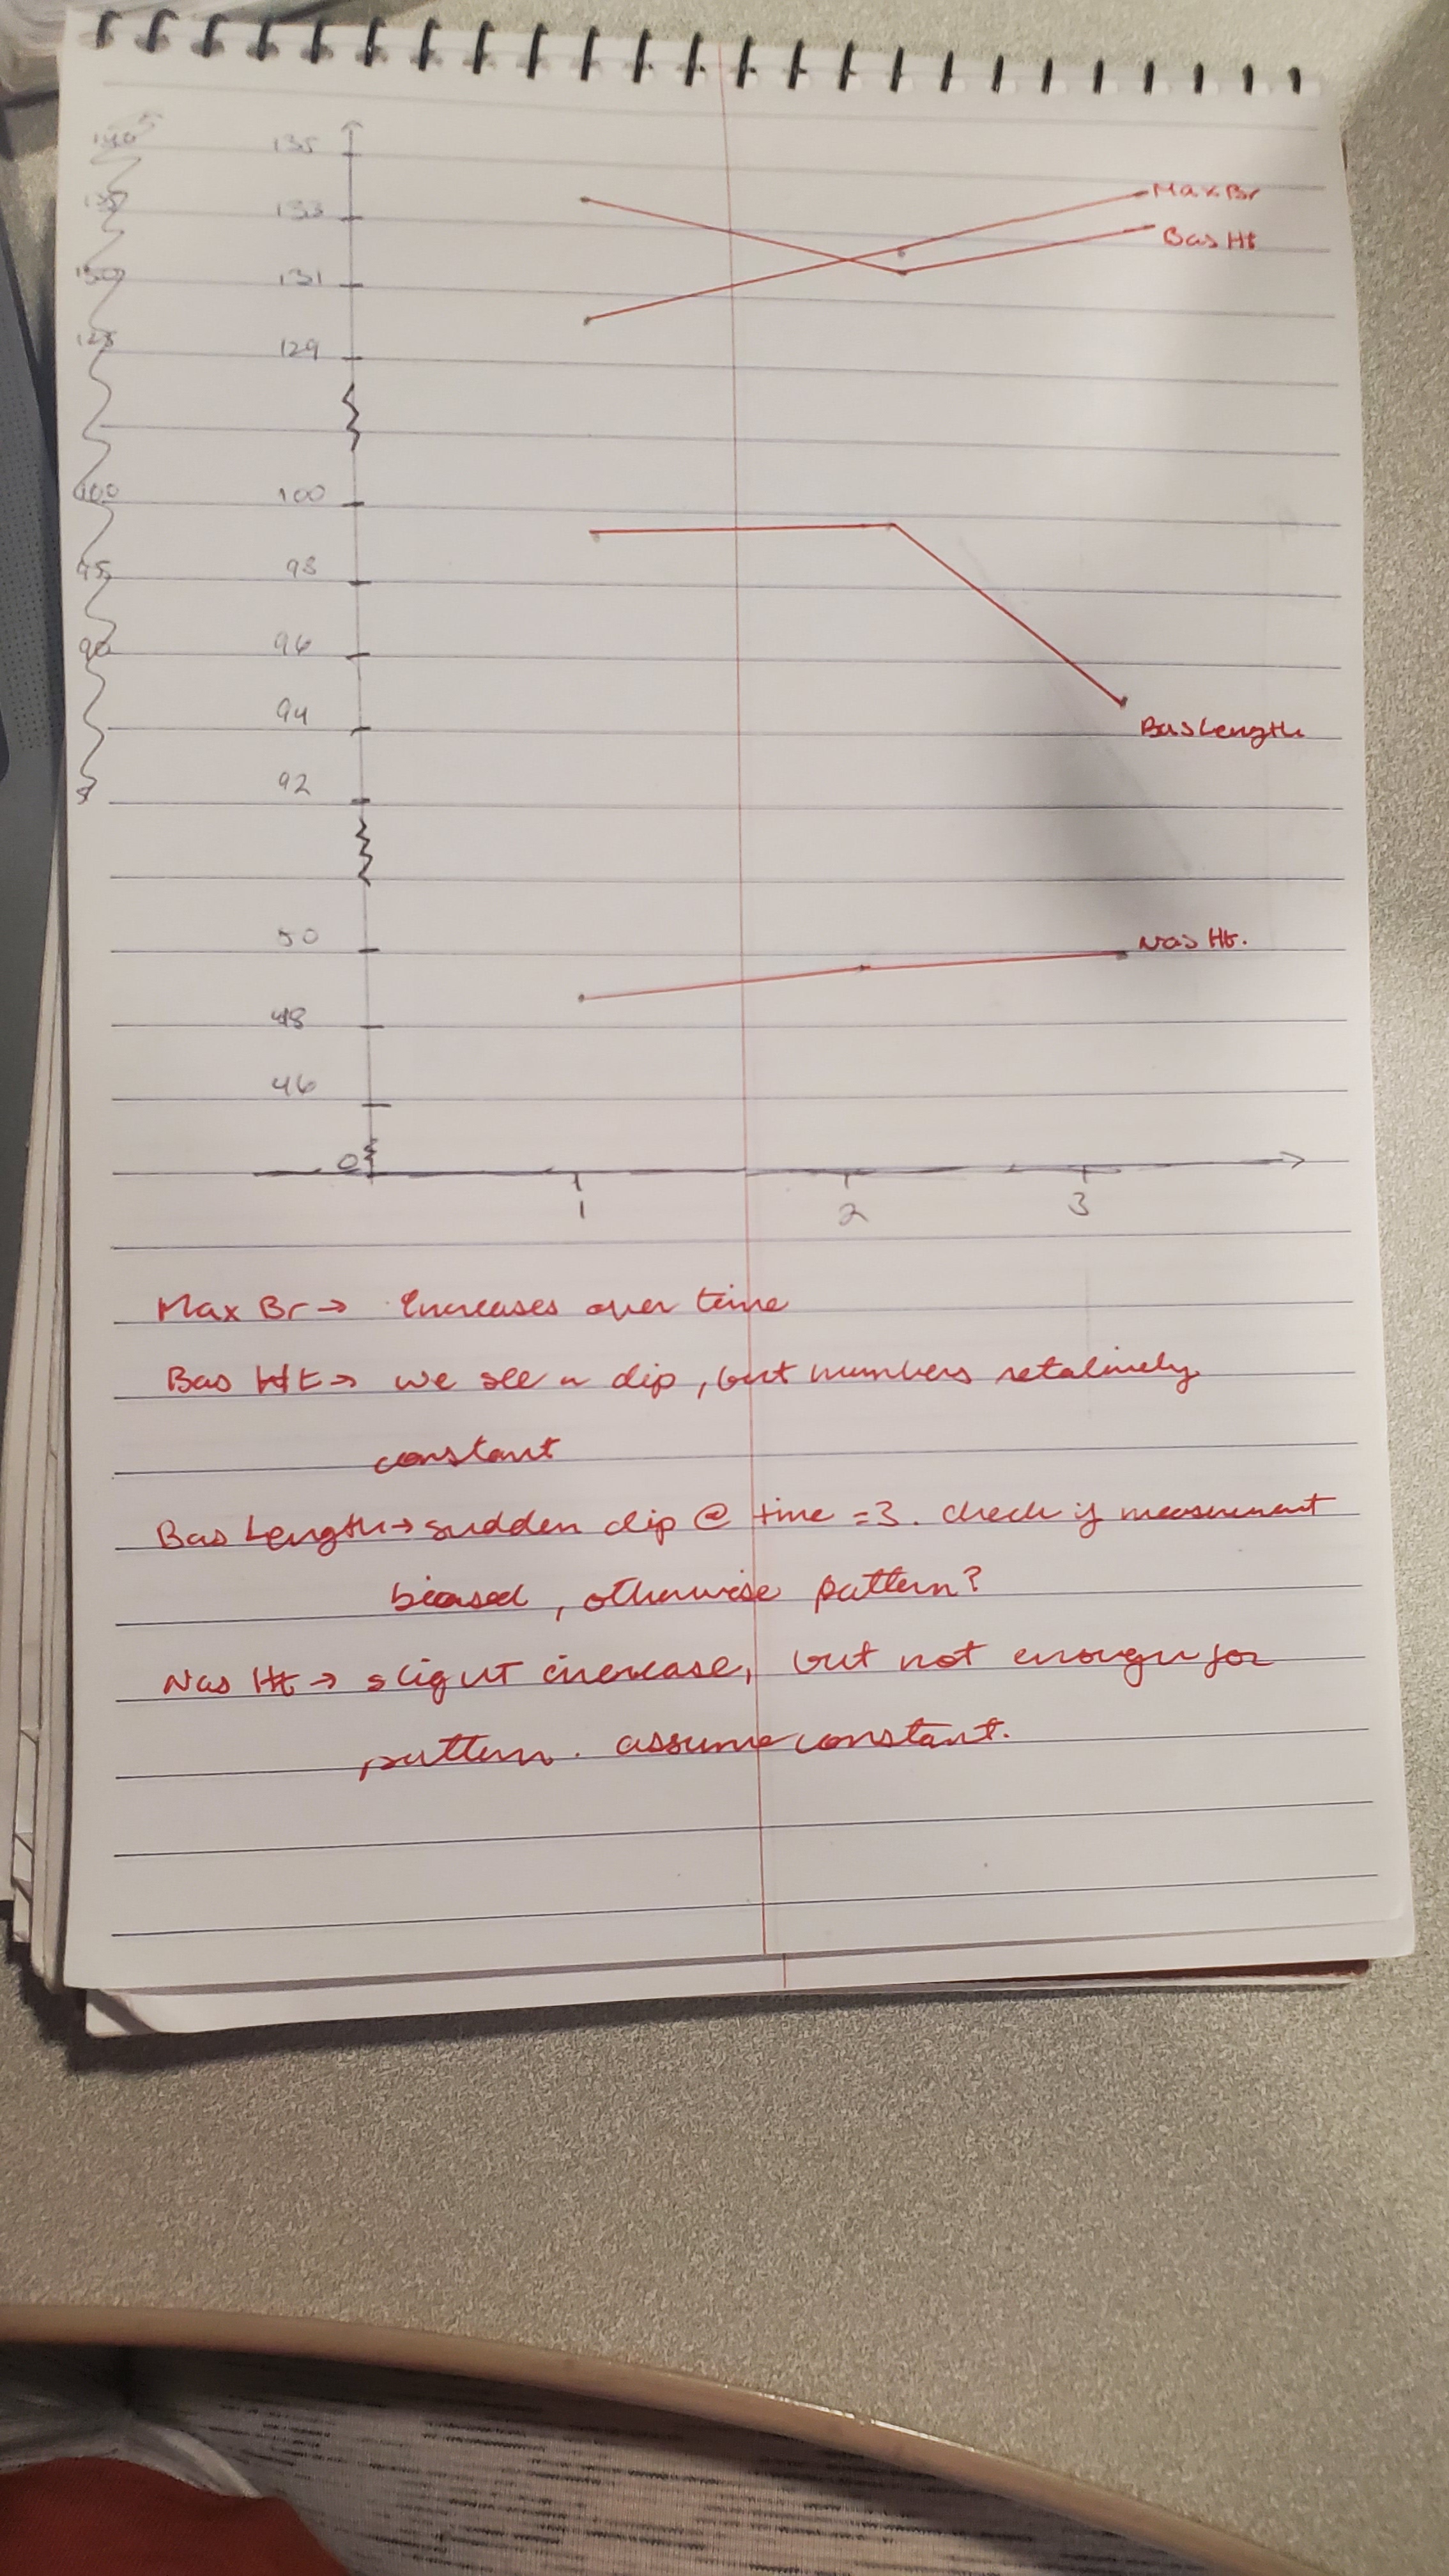 135
133
131
129
100
98
96
94
92
50
48
46
0
1 2 3
Max Br
Bas Ht
Bas Length
Nas Ht.
Max Br → Increases over time
Bas Ht → we see a dip, but numbers retalively
constant
Bas Length → sudden dip @ time = 3. check if measurement
biased, otherwise pattern?
Nas Ht → slight increase, but not enough for
pattern. assume constant.